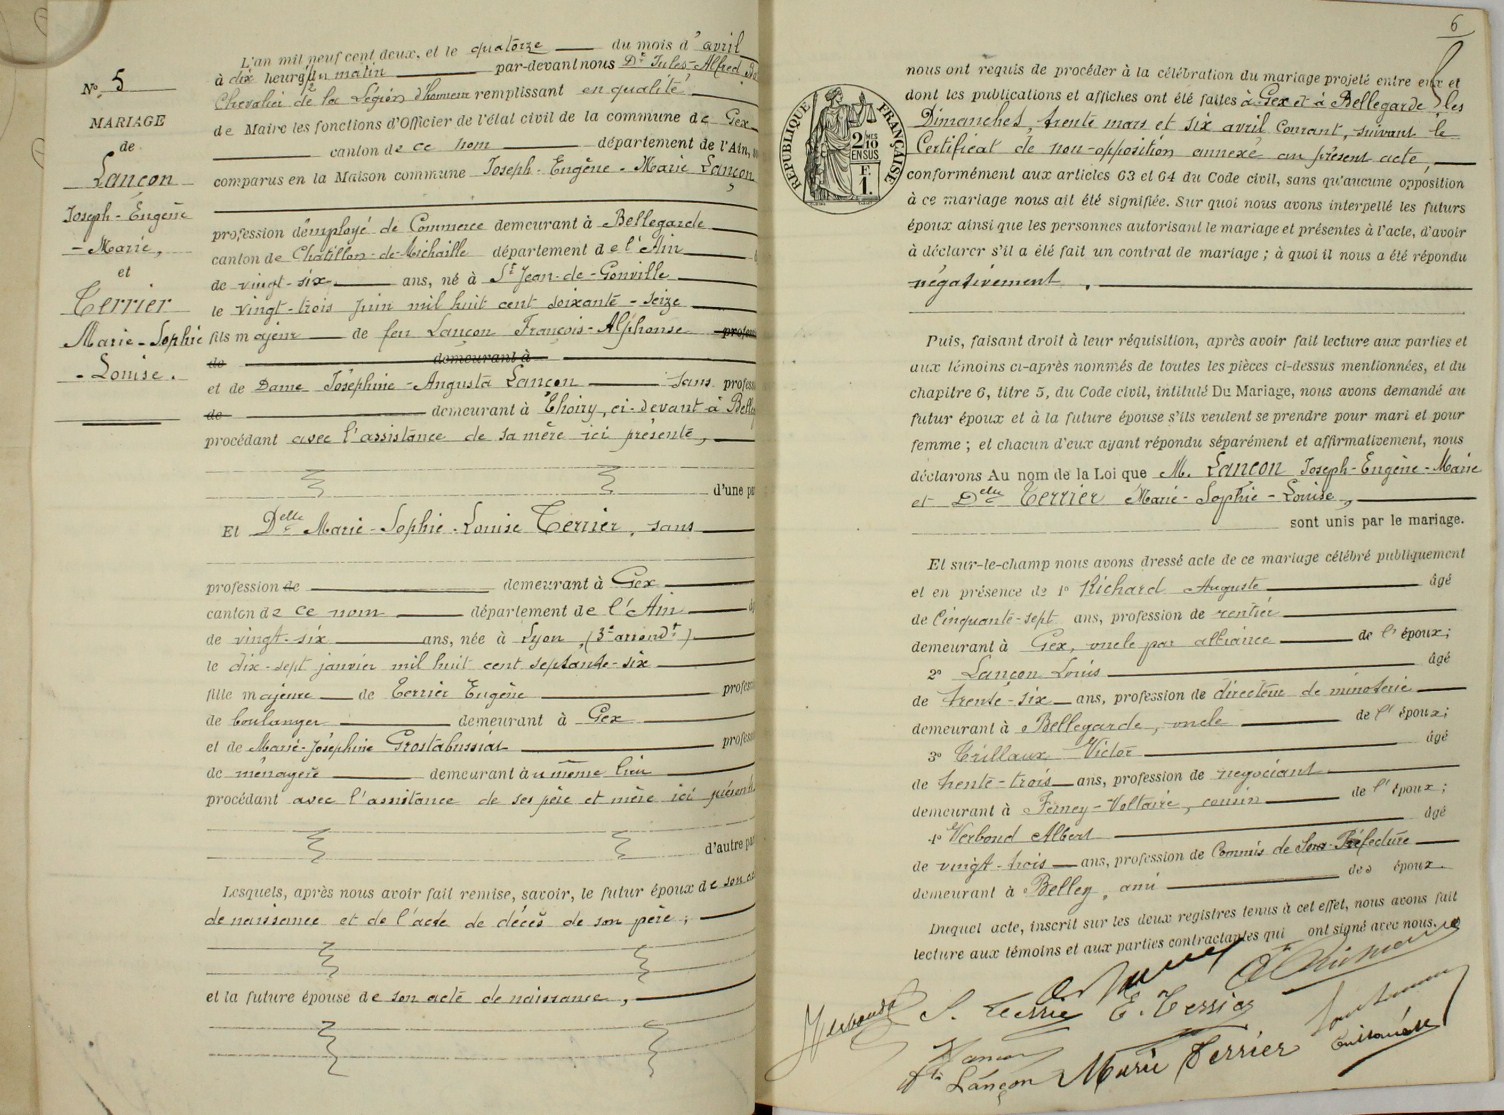 Nº 5
MARIAGE
de
Lançon
Joseph-Eugène
-Marie,
et
Terrier
Marie-Sophie
-Louise.
L'an mil neuf cent deux, et le quatorze du mois d'avril
à dix heures 1/2 du matin par-devant nous Dr Jules-Alfred
Chevalier de la Légion d'honneur remplissant en qualité
de Maire les fonctions d'Officier de l'état civil de la commune de Gex
canton de ce nom département de l'Ain,
comparus en la Maison commune Joseph-Eugène-Marie Lançon
profession d'employé de Commerce demeurant à Bellegarde
canton de Châtillon-de-Michaille département de l'Ain
de vingt-six ans, né à St Jean-de-Gonville
le vingt-trois juin mil huit cent soixante-seize
fils majeur de feu Lançon François-Alphonse
de demeurant à
et de Dame Joséphine-Augusta Lançon sans
de demeurant à Thoiry, ci-devant à
procédant avec l'assistance de sa mère ici présente,
d'une
Et Delle Marie-Sophie-Louise Terrier, sans
profession de demeurant à Gex
canton de ce nom département de l'Ain
de vingt-six ans, née à Lyon, (3e arrondt)
le dix-sept janvier mil huit cent septante-six
fille majeure de Terrier Eugène
de boulanger demeurant à Gex
et de Marie-Joséphine Grostabussiat
de ménagère demeurant au même lieu
procédant avec l'assistance de ses père et mère ici
d'autre
Lesquels, après nous avoir fait remise, savoir, le futur époux de son
de naissance et de l'acte de décès de son père;
et la future épouse de son acte de naissance,
6
RÉPUBLIQUE FRANÇAISE
2 MES
10
EN SUS
F.
1.
nous ont requis de procéder à la célébration du mariage projeté entre eux et
dont les publications et affiches ont été faites à Gex et à Bellegarde les
Dimanches, trente mars et six avril courant, suivant le
Certificat de non-opposition annexé au présent acte,
conformément aux articles 63 et 64 du Code civil, sans qu'aucune opposition
à ce mariage nous ait été signifiée. Sur quoi nous avons interpellé les futurs
époux ainsi que les personnes autorisant le mariage et présentes à l'acte, d'avoir
à déclarer s'il a été fait un contrat de mariage ; à quoi il nous a été répondu
négativement.
Puis, faisant droit à leur réquisition, après avoir fait lecture aux parties et
aux témoins ci-après nommés de toutes les pièces ci-dessus mentionnées, et du
chapitre 6, titre 5, du Code civil, intitulé Du Mariage, nous avons demandé au
futur époux et à la future épouse s'ils veulent se prendre pour mari et pour
femme ; et chacun d'eux ayant répondu séparément et affirmativement, nous
déclarons Au nom de la Loi que M. Lançon Joseph-Eugène-Marie
et Delle Terrier Marie-Sophie-Louise,
sont unis par le mariage.
Et sur-le-champ nous avons dressé acte de ce mariage célébré publiquement
et en présence de 1º Richard Auguste âgé
de Cinquante-sept ans, profession de rentier
demeurant à Gex, oncle par alliance de l'époux;
2º Lançon Louis âgé
de trente-six ans, profession de directeur de minoterie
demeurant à Bellegarde, oncle de l'époux;
3º Trillaux Victor âgé
de trente-trois ans, profession de négociant
demeurant à Ferney-Voltaire, cousin de l'époux;
4º Verboud Albert âgé
de vingt-trois ans, profession de Commis de Sous-Préfecture
demeurant à Belley, ami des époux
Duquel acte, inscrit sur les deux registres tenus à cet effet, nous avons fait
lecture aux témoins et aux parties contractantes qui ont signé avec nous.
S. Terrier E. Terrier
Lançon
Lançon Marie Terrier